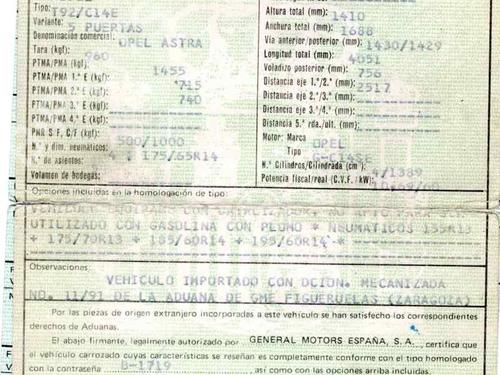 Tipo: T92/C14E
Variante: 5 PUERTAS
Denominación comercial: OPEL ASTRA
Tara (kgf): 960
PTMA/PMA (kgf): 1455
PTMA/PMA 1.ª E (kgf): 715
PTMA/PMA 2.ª E (kgf): 740
PTMA/PNA 3.ª E (kgf):
PTMA/PMA 4.ª E (kgf):
PMA S.F, C/F (kgf): 500/1000
N.º y dim. neumáticos: 4 * 175/65R14
N.º de asientos:
Volumen de bodegas:
Altura total (mm): 1410
Anchura total (mm): 1688
Vía anterior/posterior (mm): 1430/1429
Longitud total (mm): 4051
Voladizo posterior (mm): 756
Distancia eje 1.º/2.º (mm): 2517
Distancia eje 2.º/3.º (mm):
Distancia eje 3.º/4.º (mm):
Distancia 5.ª rda./ult. (mm):
Motor: Marca OPEL
Tipo
N.º Cilindros/Cilindrada (cm): 4/1389
Potencia fiscal/real (C.V.F. / kW):
Opciones incluidas en la homologación de tipo:
VEHICULO EQUIPADO CON CATALIZADOR, NO APTO PARA SER
UTILIZADO CON GASOLINA CON PLOMO * NEUMATICOS 155R13
+ 175/70R13 + 185/60R14 + 195/60R14 * -
Observaciones:
VEHICULO IMPORTADO CON DCION. MECANIZADA
NO. 11/91 DE LA ADUANA DE GME FIGUERUELAS (ZARAGOZA)
Por las piezas de origen extranjero incorporadas a este vehículo se han satisfecho los correspondientes
derechos de Aduanas.
El abajo firmante, legalmente autorizado por GENERAL MOTORS ESPAÑA, S.A., certifica que
el vehículo carrozado cuyas características se reseñan es completamente conforme con el tipo homologado
con la contraseña B-1719 así como con las opciones arriba incluidas.